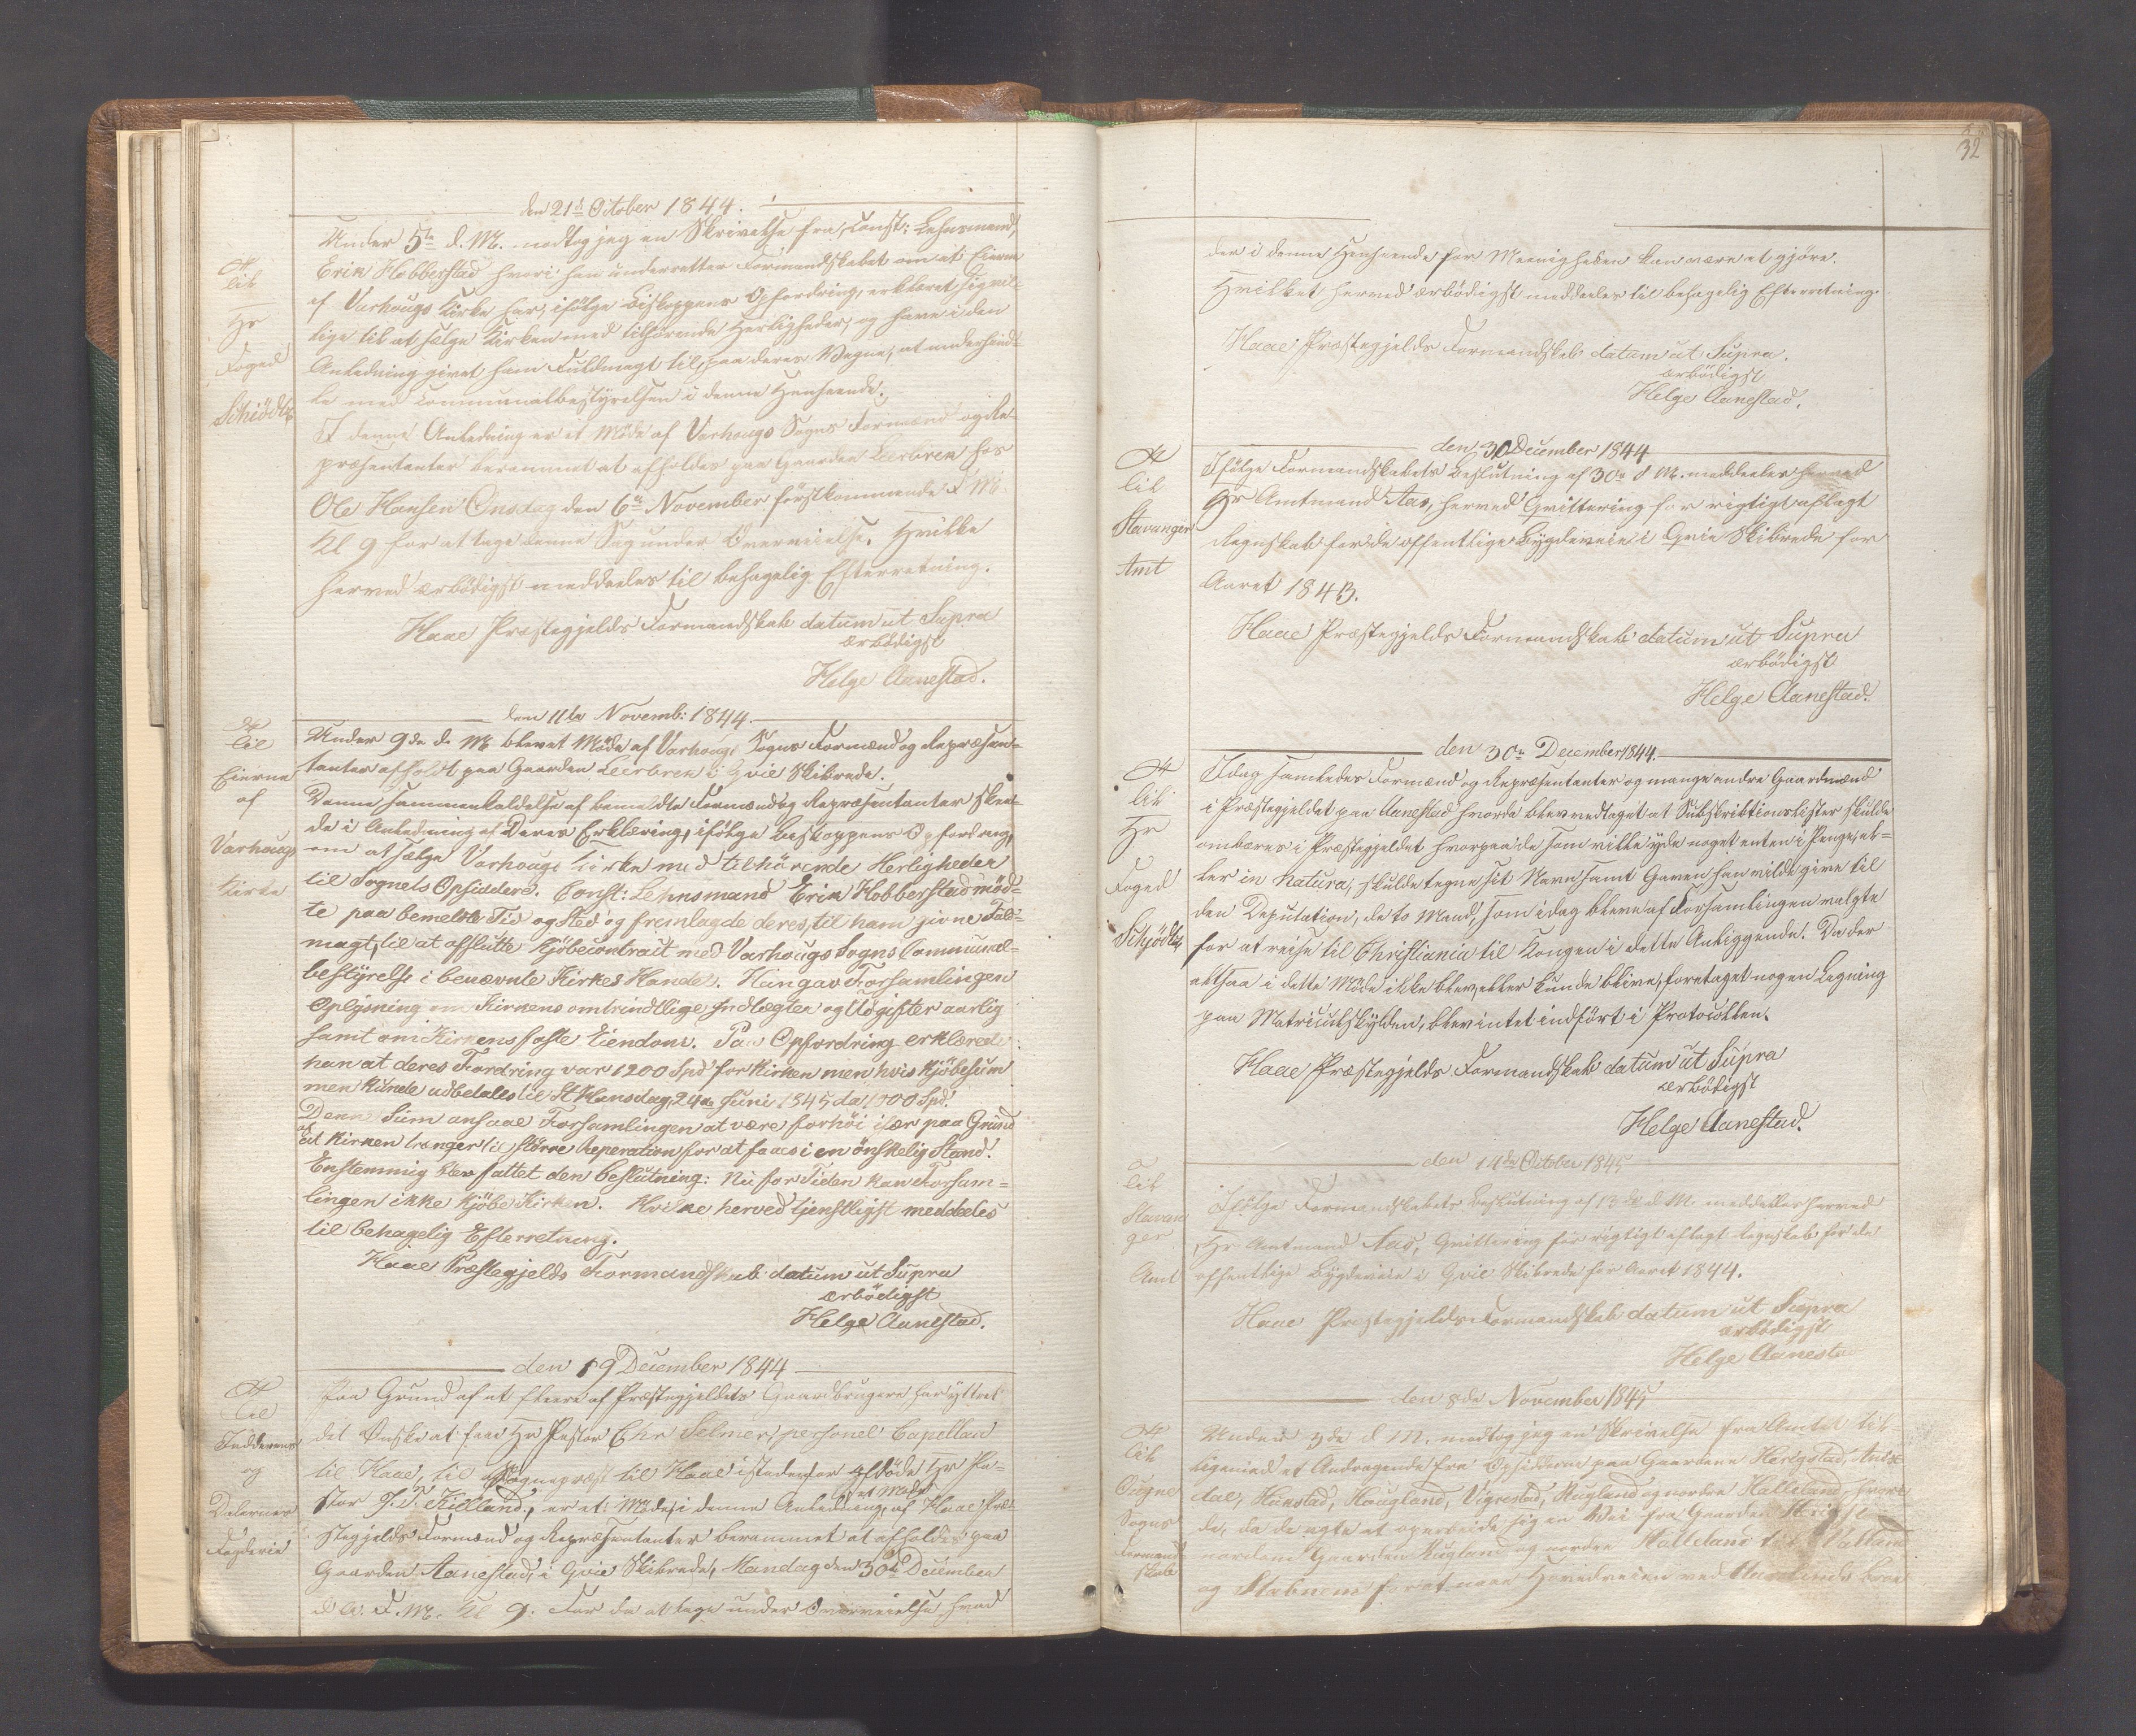 den 21de October 1844.
Under 5te d. M. modtog jeg en Skrivelse fra Const: Lehnsmand,
Erik Hobberstad hvori han underretter Formandskabet om at Eierne
af Varhougs Kirke har, ifølge Biskoppens Opfordring, erklæret sig vil-
lige til at sælge Kirken med tilhørende Herligheder, og have i den
Anledning givet ham Fuldmagt til, paa deres Vegne, at underhand-
le med Communalbestyrelsen i denne Henseende.
I denne Anledning er et Møde af Varhougs Sogns Formænd og Re-
præsentanter berammet at afholdes paa Gaarden Leerbrek hos
Ole Hansen Onsdag den 6te November førstkommende F M
Kl 9 for at tage denne Sag under Overveielse. Hvilke
herved ærbödigst meddeeles til behagelig Efterretning.
Haae Præstegjelds Formandskab datum ut Supra
ærbödigst
Helge Aanestad.
til
Hr
Foged
Schiödtz
den 11te Novemb: 1844.
Under 9de d. M. blevet Møde af Varhougs Sogns Formænd og Repræsen-
tanter afholdt paa Gaarden Leerbrek i Qvie Skibrede.
Denne Sammenkaldelse af bemeldte Formænd og Repræsentanter skee-
de i Anledning af Deres Erklæring, ifölge Biskoppens Opfordring,
om at sælge Varhougs Kirke med tilhörende Herligheder
til Sognets Opsiddere. Const: Lehnsmand Erik Hobberstad möd-
te paa bemeldte Tid og Sted og fremlagde deres, til ham givne Fuld-
magt, til at afslutte Kjöbecontract med Varhougs Sogns Communal-
bestyrelse i benævnte Kirkes Handel. Han gav Forsamlingen
Oplysning om Kirkens omtrindtlige Indtægter og Udgifter aarlig
samt om Kirkens faste Eiendom. Paa Opfordring erklærede
han at deres Fordring var 1200 Spd for Kirken men hvis Kjöbesum
men kunde udbetales til St Hansdag, 24de Juni 1845, da 1000 Spd.
Denne Sum ansaae Forsamlingen at være forhöi især paa Grund
af
at Kirken trænger til större Reperation for at faaes i en önskelig Stand.
Enstemmig blev fattet den Beslutning: Nu for Tiden kan Forsam-
lingen ikke kjöbe Kirken. Hvilke herved tjenstligst meddeeles
til behagelig Efterretning.
Haae Præstegjelds Formandskab datum ut Supra
ærbödigst
Helge Aanestad.
til
Eierne
af
Varhougs
Kirke
den 19 December 1844
Paa Grund af at fleere af Præstegjeldets Gaardbrugere har yttret
det Ønske at faae Hr Pastor Chr Selmer, personel Capellan
til Haae, til Sognepræst til Haae istedenfor afdöde Hr Pa-
stor Kielland, er et Møde, i denne Anledning, af Haae Præ-
stegjelds Formænd og Repræsentanter berammet at afholdes paa
Gaarden Aanestad, i Qvie Skibrede, Mandag den 30te December
d. A. F. M. Kl 9. For da at tage under Overveielse hvad
til
Jedderens
og
Dalernes
Fogderie
32
der i denne Henseende for Meenigheden kan være at gjöre.
Hvilket herved ærbödigst meddeeles til behagelig Efterretning.
Haae Præstegjelds Formandskab datum ut Supra.
ærbödigst
Helge Aanestad.
den 30 December 1844
Ifölge Formandskabets Beslutning af 30te d M. meddeeles herved
Hr Amtmand Aas, herved Qvittering for rigtigt aflagt
Regnskab for de offentlige Bygdeveie i Qvie Skibrede for
Aaret 1843.
Haae Præstegjelds Formandskab datum ut Supra
ærbödigst
Helge Aanestad.
til
Stavanger
Amt
den 30te December 1844.
Idag samledes Formænd og Repræsentanter og mange andre Gaardmænd
i Præstegjeldet paa Aanestad hvorda blev vedtaget at Subskriktionslister skulde
ombæres i Præstegjeldet hvorpaa de som ville yde noget enten i Penge, el-
ler in natura, skulde tegne sit Navn samt Gaven han vilde give til
den Deputation, de to Mænd, som idag bleve af Forsamlingen valgte
for at reise til Christiania til Kongen i dette Anliggende. Da der
altsaa i dette Møde ikke blev, eller kunde blive, foretaget nogen Legning
paa Matriculskylden, blev intet indfört i Protocollen.
Haae Præstegjelds Formandskab datum ut Supra
ærbödigst
Helge Aanestad.
til
Hr
Foged
Schjödtz
den 14de October 1845
Ifölge Formandskabets Beslutning af 13de d. M. meddeeles herved
Hr Amtmand Aas, Qvittering for rigtigt aflagt Regnskab for de
offentlige Bygdeveie i Qvie Skibrede for Aaret 1844.
Haae Præstegjelds Formandskab datum ut Supra
ærbödigst
Helge Aanestad
til
Stavan
ger
Amt
den 8de November 1845
Under 3de d M. modtog jeg en Skrivelse fra Amtet til-
ligemed et Andragende fra Opsidderne paa Gaardene Herigstad,
dal, Hanstad, Hougland, Vigrestad, Rugland og nordre Halleland, hvori
de, da de agte at oparbeide sig en Vei fra Gaarden
nordom Gaarden Rugland og nordre Halleland til
og Stabnem foret over Hovedveien ved
til
Ougne
Sogns
Formand
skab